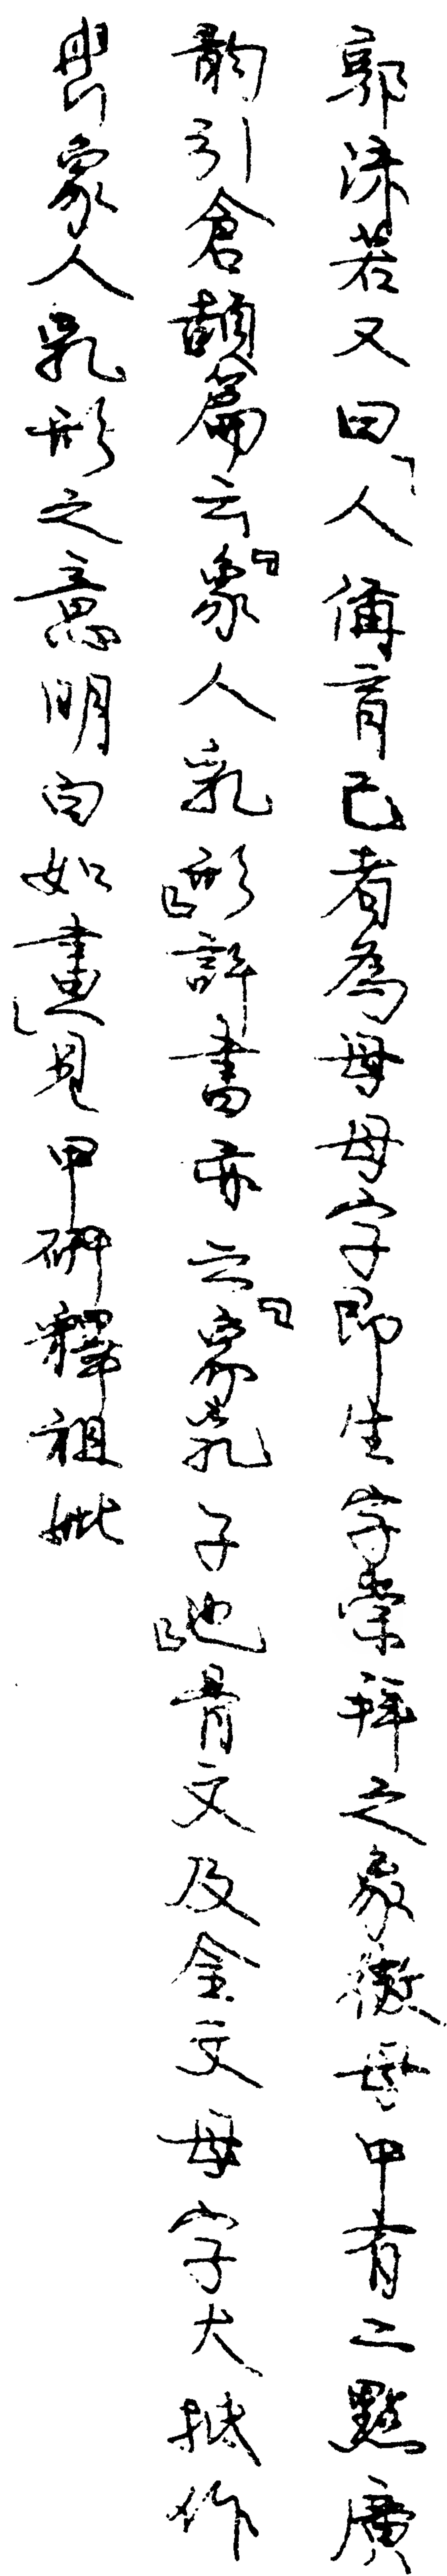 郭沫若又曰「人偁育己者為母母字即生字崇拜之象徵母中有二點廣
韵引倉頡篇云『象人乳形』許書亦云『象乳子也』骨文及金文母字大抵作
象人乳形之意明白如畫」見甲研釋祖妣